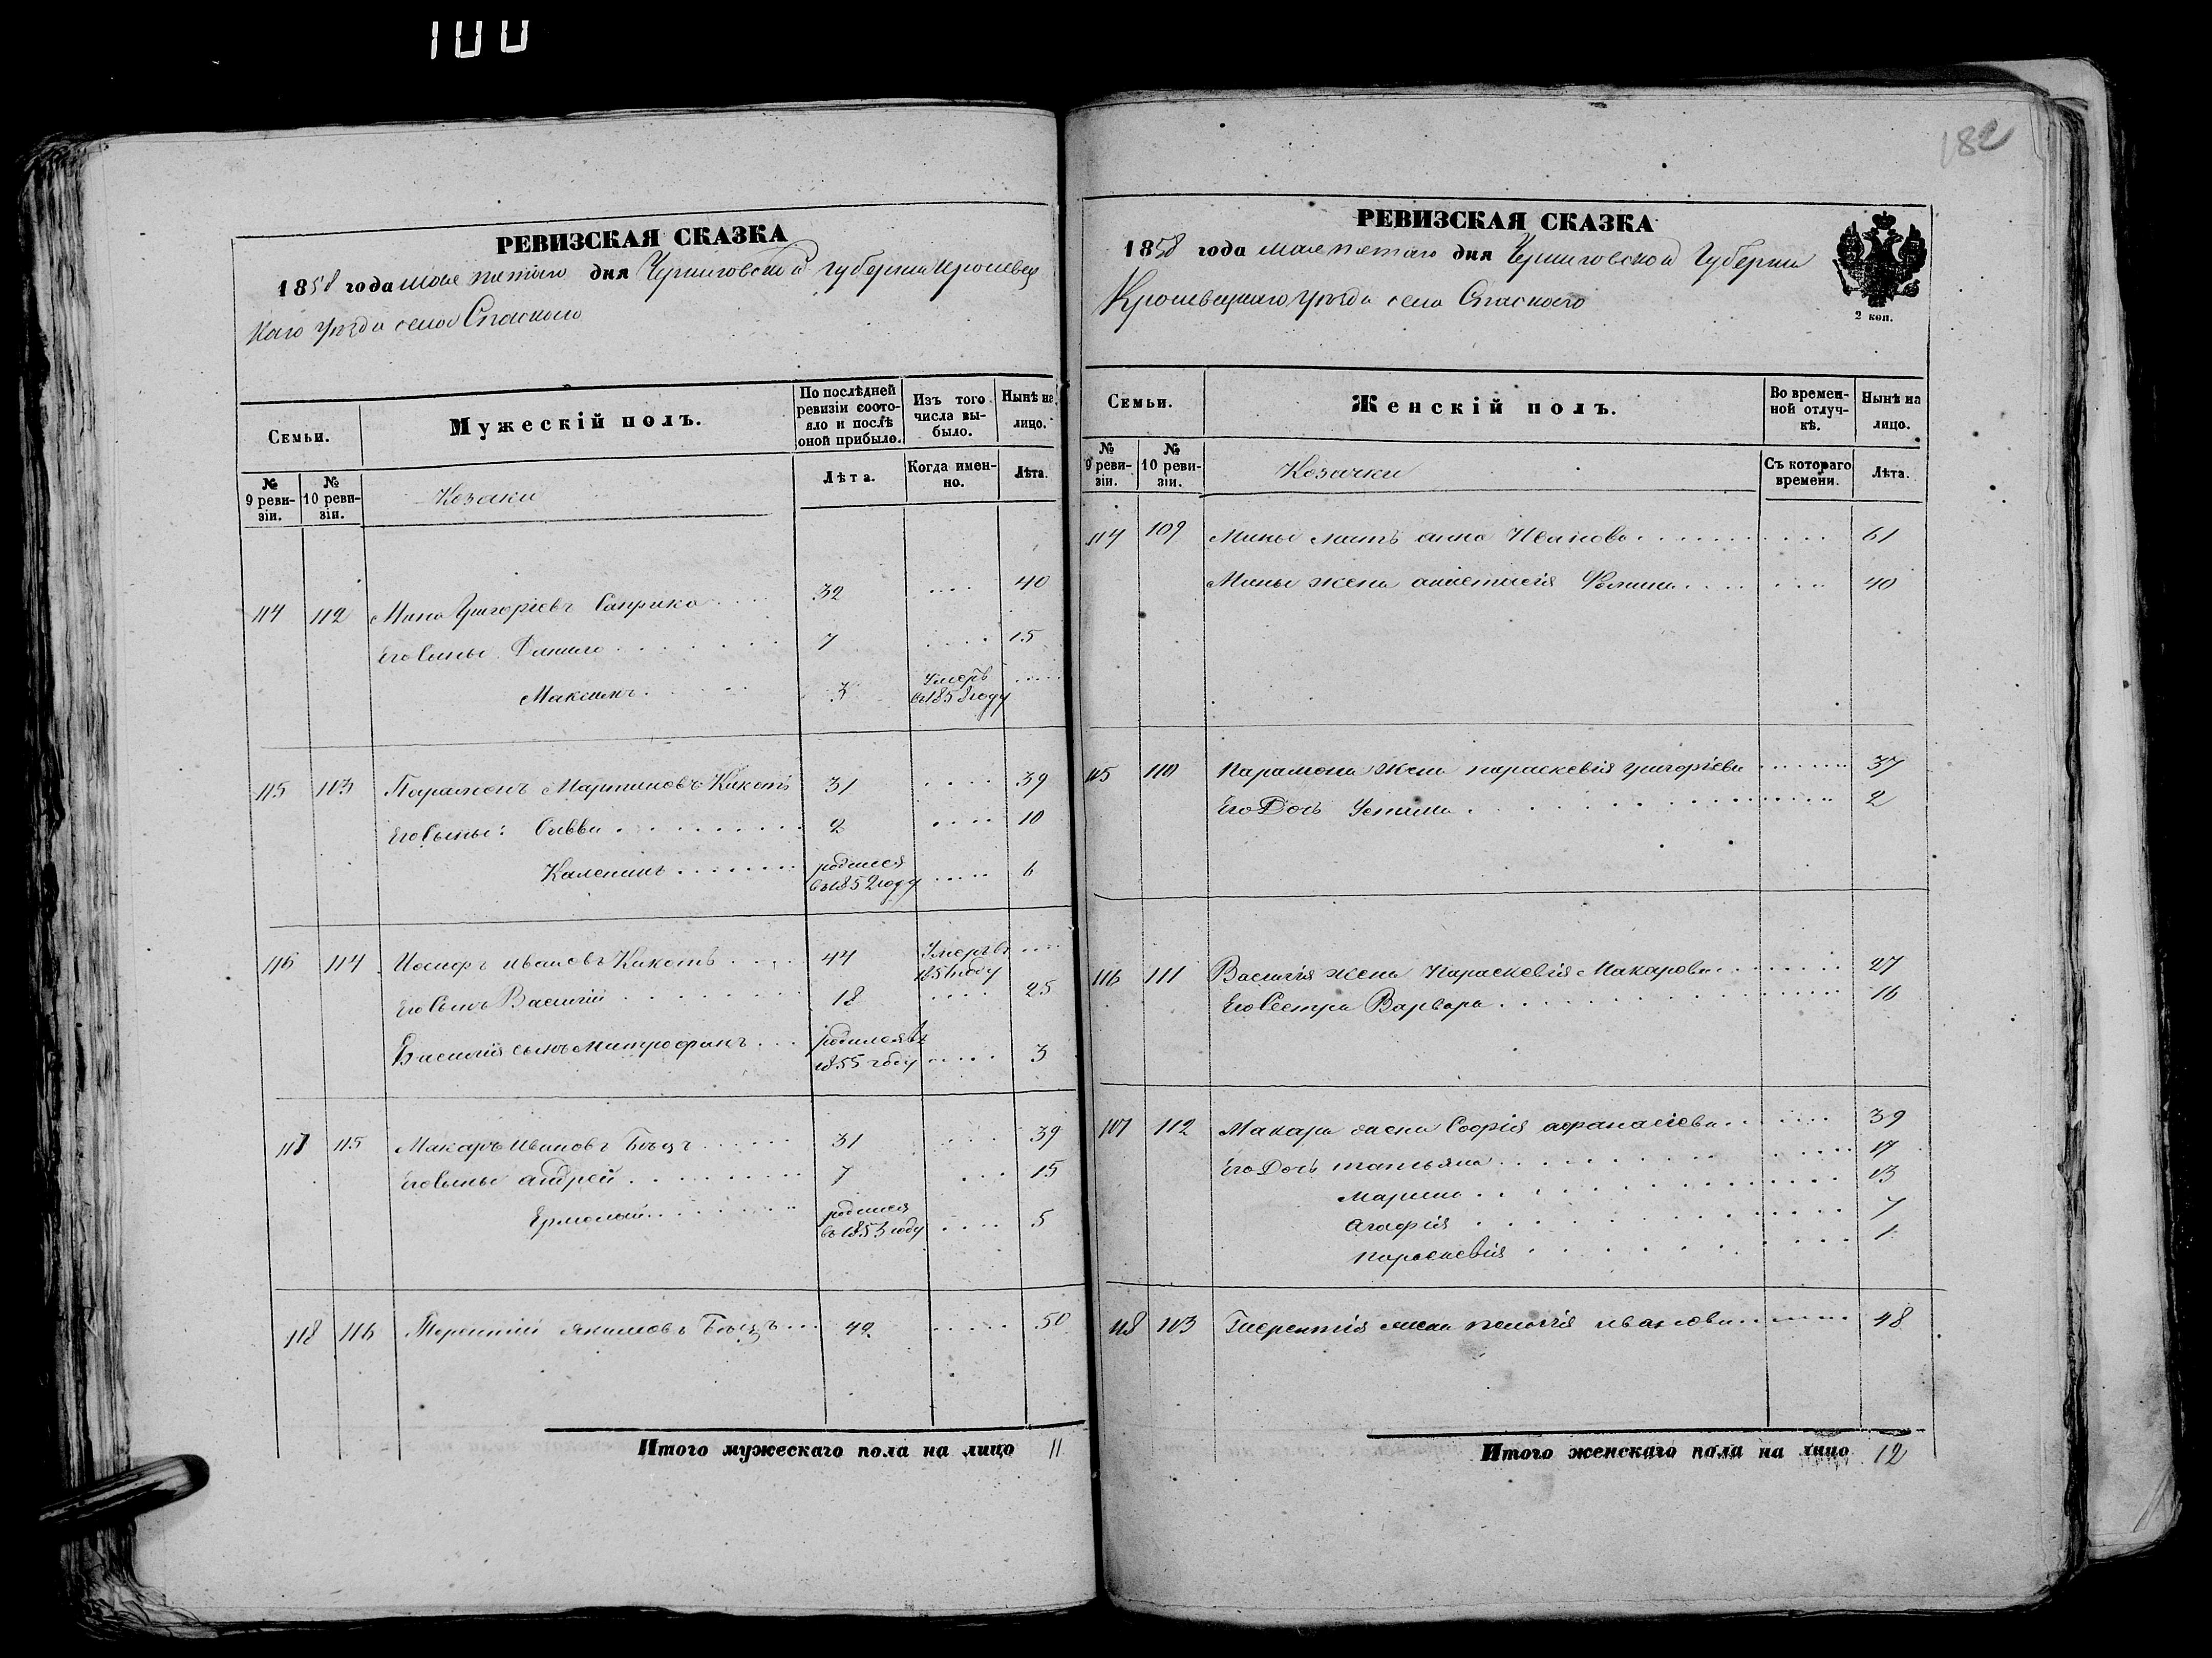 100
РЕВИЗСКАЯ СКАЗКА
1858 года мая пятаго дня Черниговской губернии Кролевец
каго уезда села Спаскаго
Семьи.
Мужескій полъ.
По послѣдней ревизіи состояло и послѣ оной прибыло.
Изъ того числа выбыло.
Нынѣ на лицо.
№ 9 ревизіи.
№ 10 ревизіи.
Козаки
Лѣта.
Когда именно.
Лѣта.
114 112 Мина Григоріевъ 32 .... 40
Его Сыны 7 .... 15
Максимъ 3 Умеръ въ 185 году ....
115 113 Парамонъ Мартиновъ Кикоть 31 .... 39
Его Сыны: Савва 2 .... 10
Каленикъ родился въ 1852 году .... 6
116 114 Иосифъ Ивановъ Кикоть 44 Умеръ въ 1851 году ....
Его Сынъ Василій 18 .... 25
Василія сынъ Митрофанъ родился въ 1855 году .... 3
117 115 Макаръ Ивановъ 31 .... 39
Его Сыны Андрей 7 .... 15
Ермолай родился въ 1853 году .... 5
118 116 Терентій Якимовъ 42 .... 50
Итого мужескаго пола на лицо 11
182
РЕВИЗСКАЯ СКАЗКА
1858 года мая пятаго дня Черниговской Губернии
Кролевецкаго уезда села Спаскаго
2 коп.
Семьи.
Женскій полъ.
Во временной отлучкѣ.
Нынѣ на лицо.
№ 9 ревизіи.
№ 10 ревизіи.
Козачки
Съ котораго времени.
Лѣта.
114 109 Мины мать Анна Иванова .... 61
Мины жена Анастасія .... 40
115 110 Парамона жена Параскевія Григоріева .... 37
Его Дочь Устина .... 2
116 111 Василія жена Параскевія Макарова .... 27
Его Сестра Варвара .... 16
107 112 Макара жена Софія Афанасіева .... 39
Его Дочь Татьяна .... 17
Марина .... 13
Агафія .... 7
Параскевія .... 1
118 113 Терентія жена Пелагія Иванова .... 48
Итого женскаго пола на лицо 12